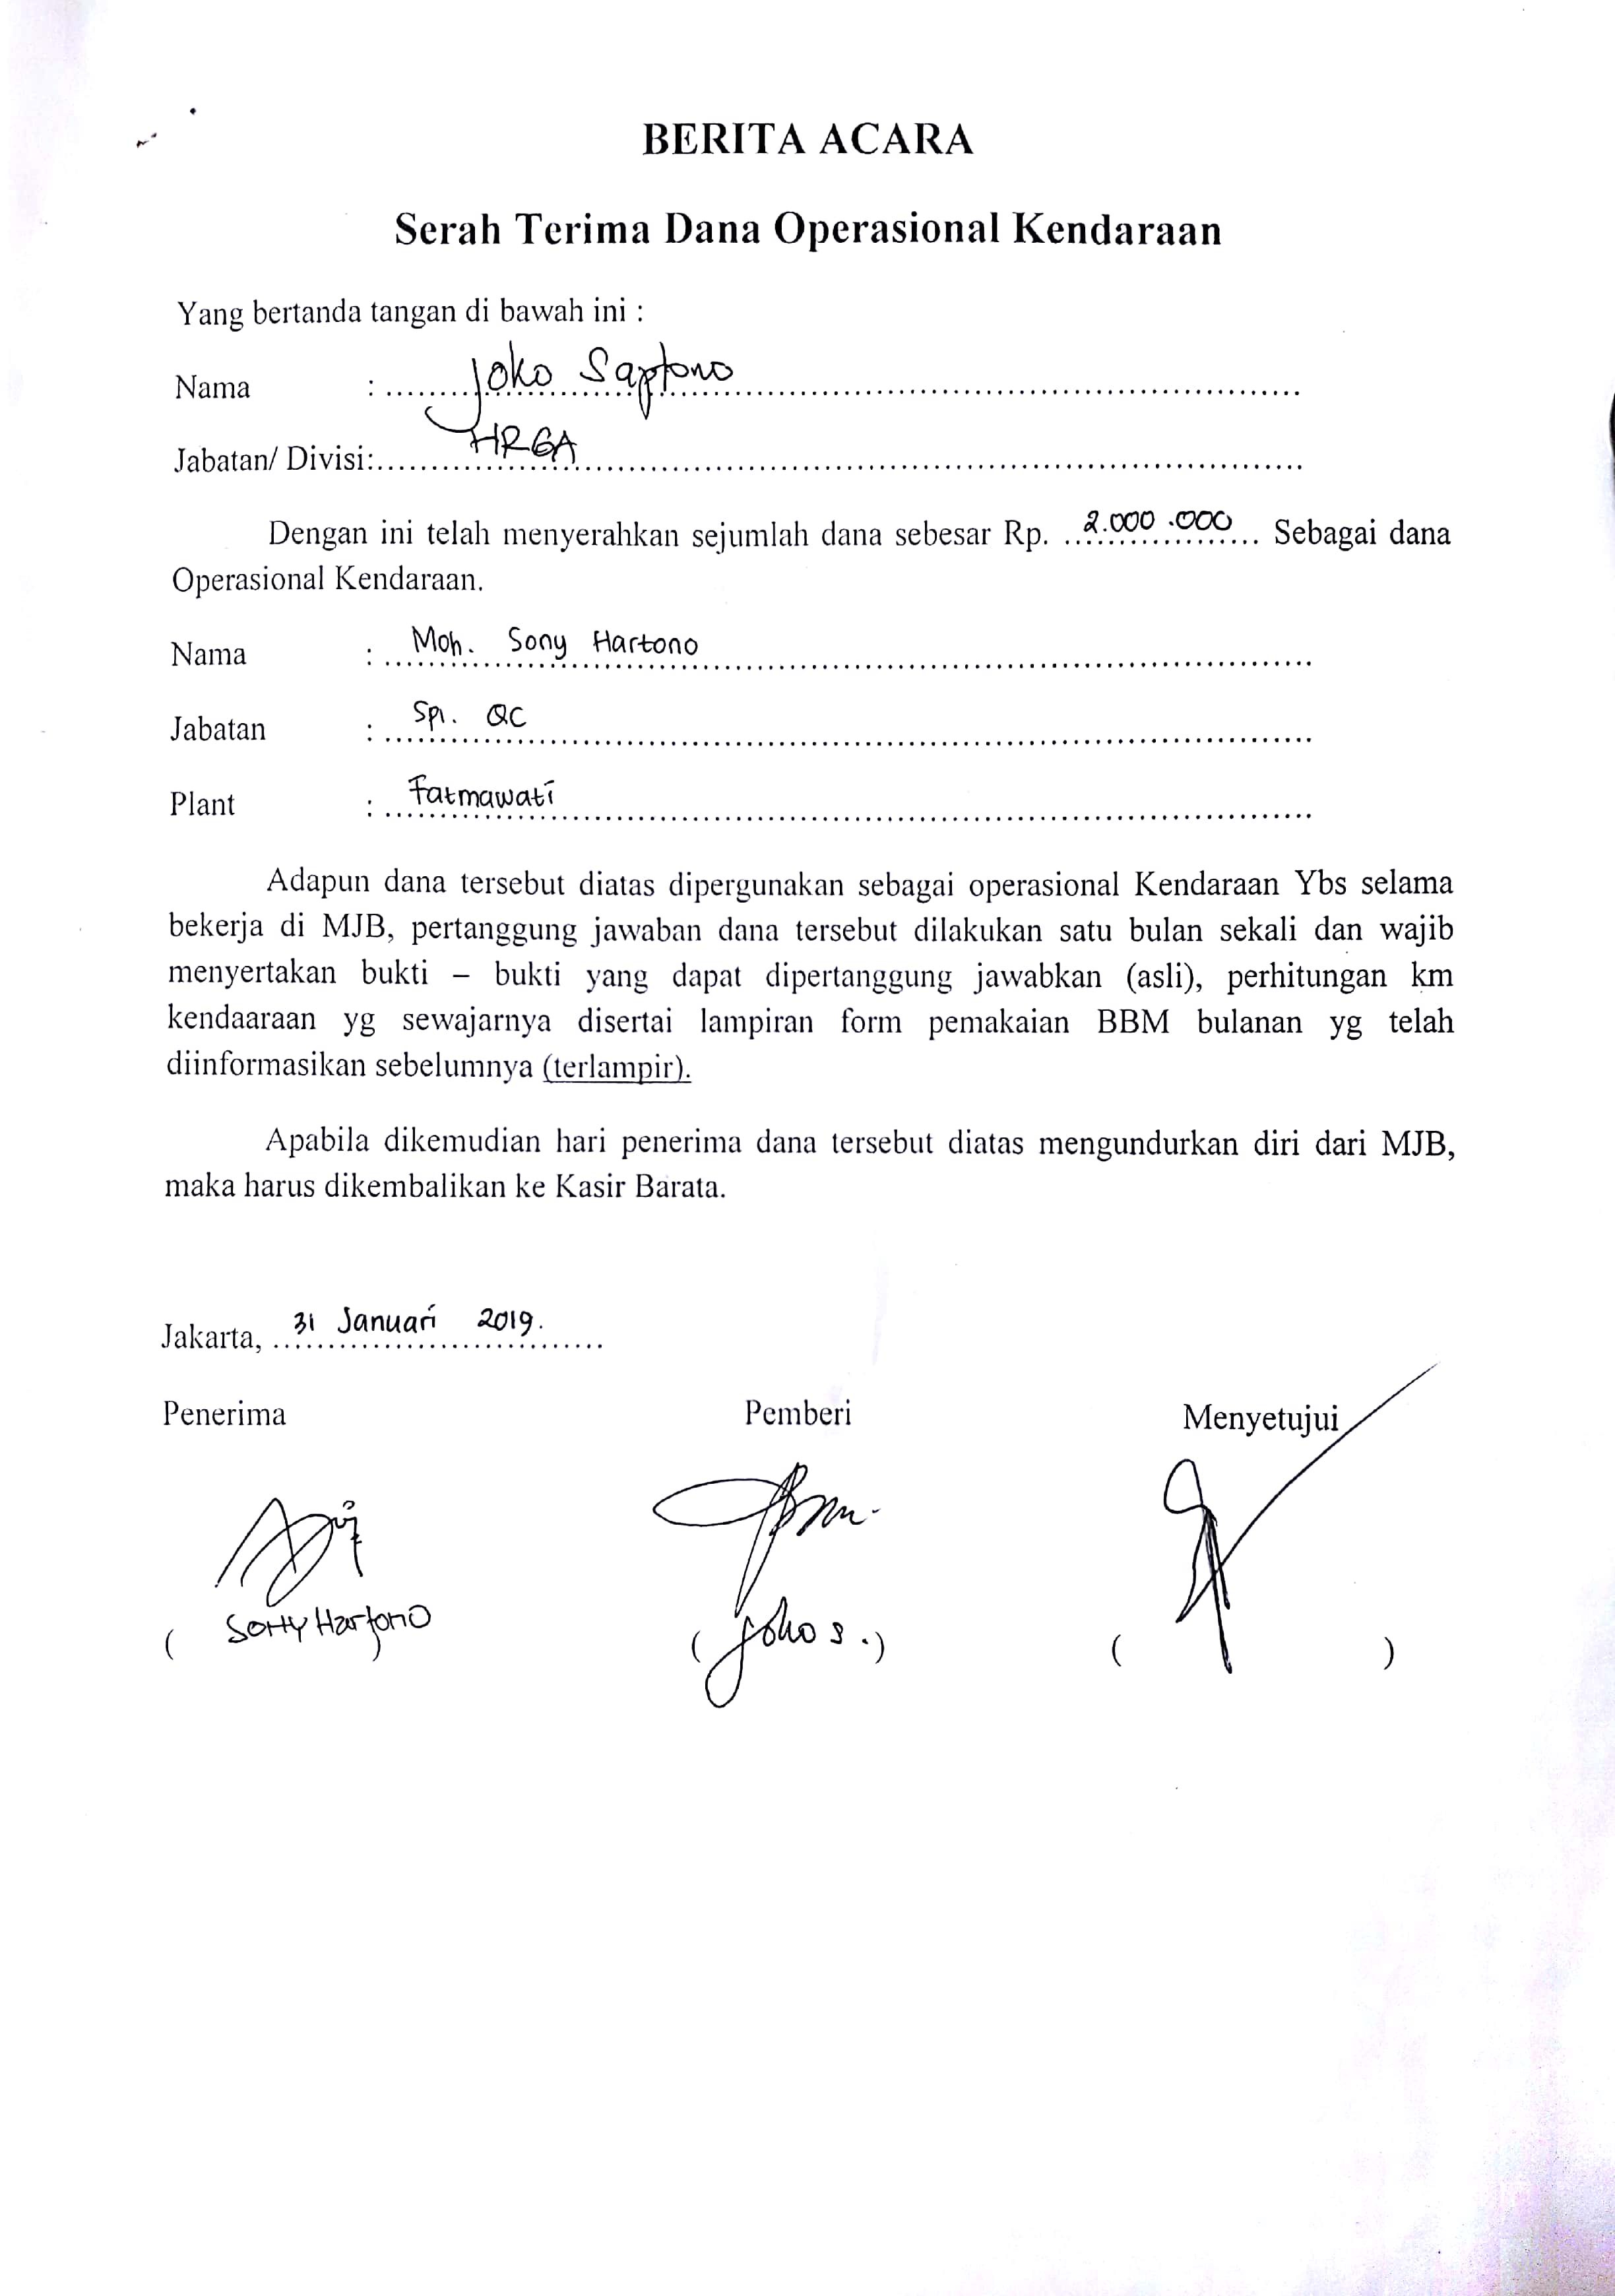 BERITA ACARA
Serah Terima Dana Operasional Kendaraan
Yang bertanda tangan di bawah ini :
Nama : Joko Saptono
Jabatan/ Divisi: HRGA
Dengan ini telah menyerahkan sejumlah dana sebesar Rp. 2.000.000 Sebagai dana
Operasional Kendaraan.
Nama : Moh. Sony Hartono
Jabatan : Spv. QC
Plant : Fatmawati
Adapun dana tersebut diatas dipergunakan sebagai operasional Kendaraan Ybs selama
bekerja di MJB, pertanggung jawaban dana tersebut dilakukan satu bulan sekali dan wajib
menyertakan bukti – bukti yang dapat dipertanggung jawabkan (asli), perhitungan km
kendaaraan yg sewajarnya disertai lampiran form pemakaian BBM bulanan yg telah
diinformasikan sebelumnya (terlampir).
Apabila dikemudian hari penerima dana tersebut diatas mengundurkan diri dari MJB,
maka harus dikembalikan ke Kasir Barata.
Jakarta, 31 Januari 2019.
Penerima Pemberi Menyetujui
( Sony Hartono ( Joko S .) ( )